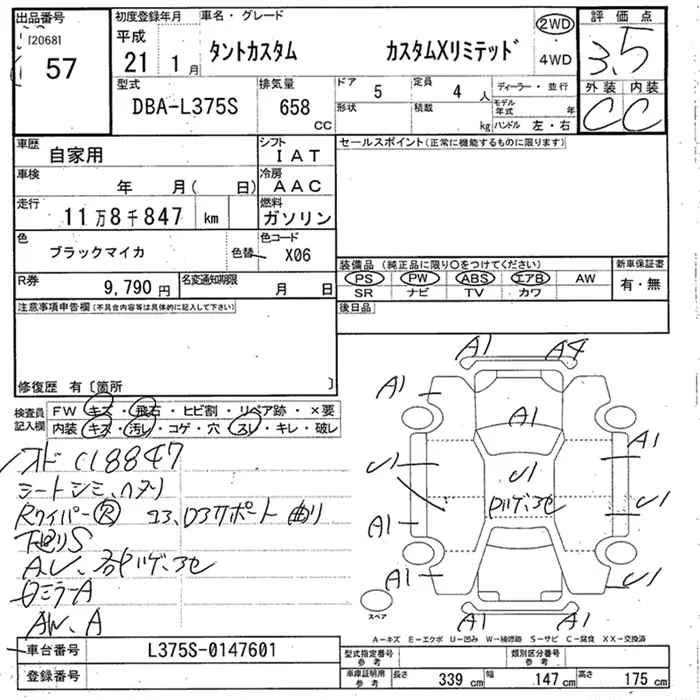 出品番号 初度登録年月 車名・グレード 評価点
[2068] 平成 2WD
57 21 1月 タントカスタム カスタムXリミテッド 4WD 3.5
型式 排気量 ドア 5 定員 4人 ディーラー・並行 外装 内装
DBA-L375S 658 CC 形状 積載 kg モデル年式 年 C C
ハンドル 左・右
車歴 自家用 シフト IAT セールスポイント(正常に機能するものに限ります)
車検 年 月( 日) 冷房 AAC
走行 11万8千847 km 燃料 ガソリン
色 ブラックマイカ 色替 色コード X06
装備品(純正品に限り○をつけてください) 新車保証書
R券 9,790円 名変通知期限 月 日 PS PW ABS エアB AW 有・無
SR ナビ TV カワ
注意事項申告欄(不具合内容等は具体的に記入して下さい) 後日品
修復歴 有〔箇所 〕
検査員記入欄 FW キズ・飛石・ヒビ割・リペア跡・×要
内装 キズ・汚レ・コゲ・穴・スレ・キレ・破レ
A1 A4
A1 A1
A1
U1 U1 U1
A1
A1 A1 U1
A1 A1
スペア
118847
シートシミ、ヘタリ
Rワイパー Ⓡ
下廻りS
ロミラーA
AW、A
A-キズ E-エクボ U-凹み W-補修跡 S-サビ C-腐食 XX-交換済
車台番号 L375S-0147601 型式指定番号 参考 類別区分番号 参考
登録番号 車庫証明用 参考 長さ 339 cm 幅 147 cm 高さ 175 cm